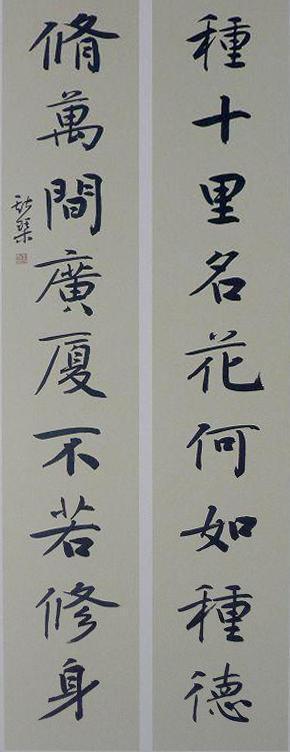 種十里名花何如種德
脩萬間廣廈不若修身